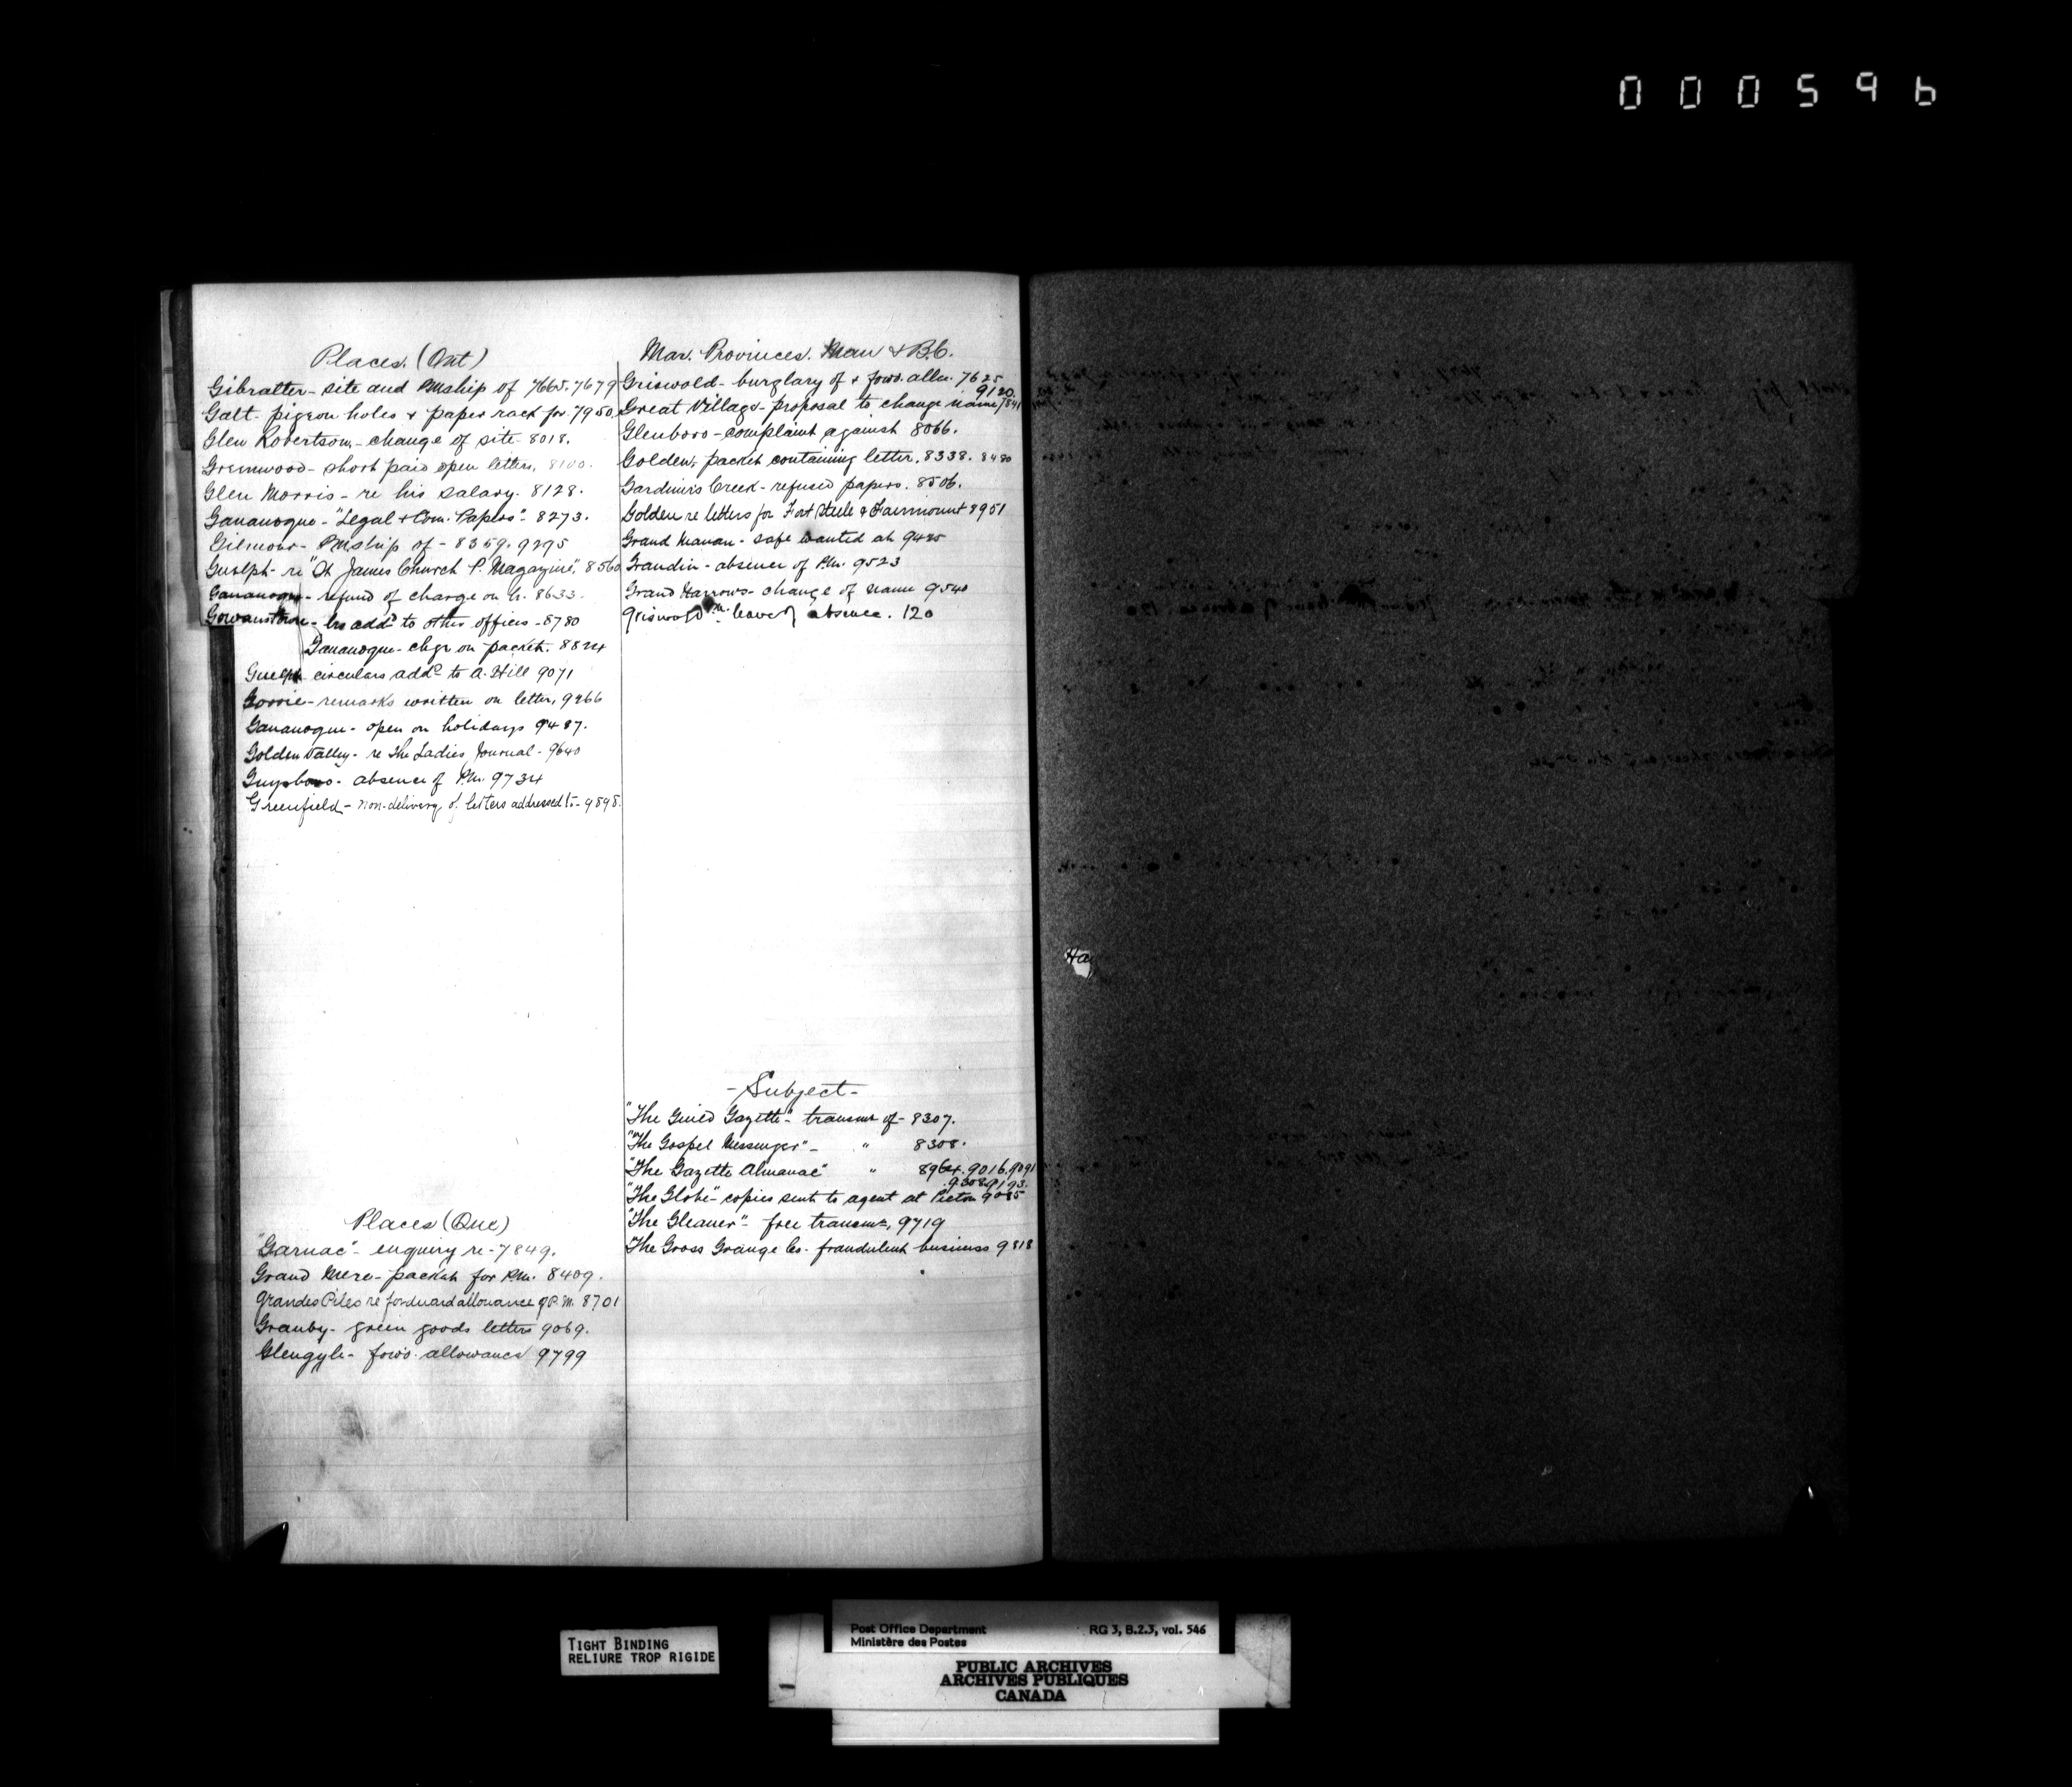 000596
Places. (Ont)
Gibralter - site and PMship of 7665. 7679
Galt - pigeon holes & paper rack for 7950
Glen Robertson - change of site - 8018.
Greenwood - short paid open letters, 8100.
Glen Morris - re his salary. 8128.
Gananoque - "Legal & Com. Papers" - 8273.
Gilmour - PMship of - 8359. 9295
Guelph - re "St James Church P. Magazine", 8560
Gananoque - refund of charge on h. 8633.
Gowanstown - lrs addd to other offices - 8780
Gananoque - chge on packet. 8824
Guelph circulars addd to A. Hill 9071
Gorrie - remarks written on letter, 9266
Gananoque - open on holidays 9487.
Golden Valley - re The Ladies Journal - 9640
Guysboro - absence of P.M. 9734
Greenfield - non-delivery of letters addressed to - 9898.
Places (Que)
"Garnac" - enquiry re - 7849.
Grand Mere - packet for P.M. 8409.
Grandes Piles re forward allowance of P.M. 8701
Granby - green goods letters 9069.
Glengyle - forwd. allowance 9799
Mar. Provinces. Man & B.C.
Griswold - burglary of & forwd. allce. 7625
9120.
Great Village - proposal to change name 7841
Glenboro - complaint against 8066.
Golden, packet containing letter. 8338. 8480
Gardiner's Creek - refused papers. 8506.
Golden re letters for Fort Steele & Fairmount 8951
Grand Manan - safe wanted at 9425
Grandin - absence of P.M. 9523
Grand Narrows - change of name 9540
Griswold P.M. leave of absence. 120
- Subject -
"The Guild Gazette" - transmn of - 8307.
"The Gospel Messenger" - " 8308.
"The Gazette Almanac" " 8964. 9016. 9091
9308. 9193.
"The Globe" - copies sent to agent at Picton 9085
"The Gleaner" - free transmn, 9719
The Gross Grange Co. - fraudulent business 9818
Ha
TIGHT BINDING
RELIURE TROP RIGIDE
Post Office Department RG 3, B.2.3, vol. 546
Ministère des Postes
PUBLIC ARCHIVES
ARCHIVES PUBLIQUES
CANADA